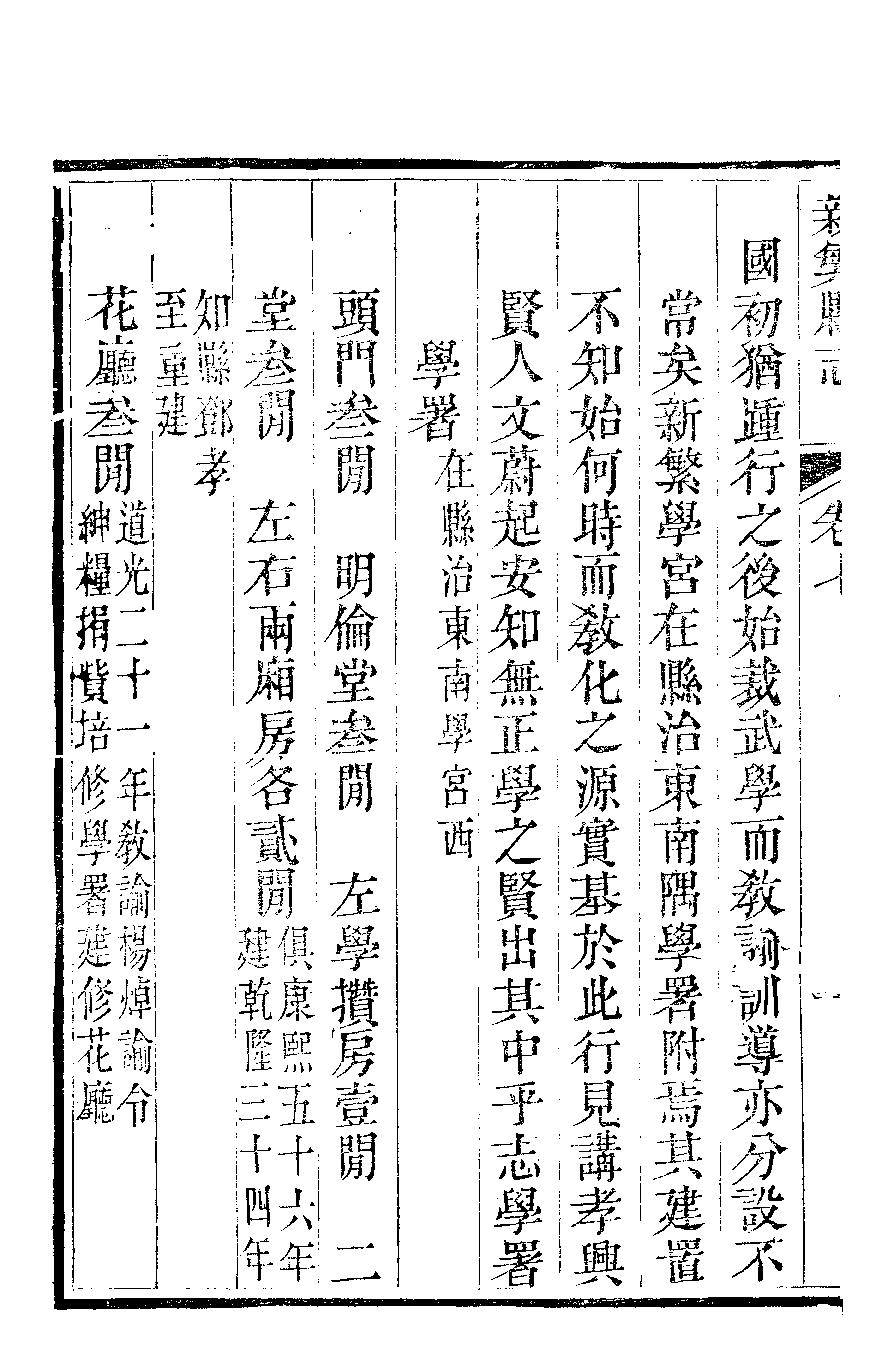 新繁縣志 卷七 一
國初猶踵行之後始裁武學而敎諭訓導亦分設不
常矣新繁學宮在縣治東南隅學署附焉其建置
不知始何時而敎化之源實基於此行見講孝興
賢人文蔚起安知無正學之賢出其中乎志學署
學署 在縣治東南學宮西
頭門叁閒 明倫堂叁閒 左學攢房壹閒 二
堂叁閒 左右兩廂房各貳閒 俱康熙五十六年
建乾隆三十四年
知縣鄧孝
至重建
花廳叁閒 道光二十一年敎諭楊焯諭令
紳糧捐貲培修學署建修花廳